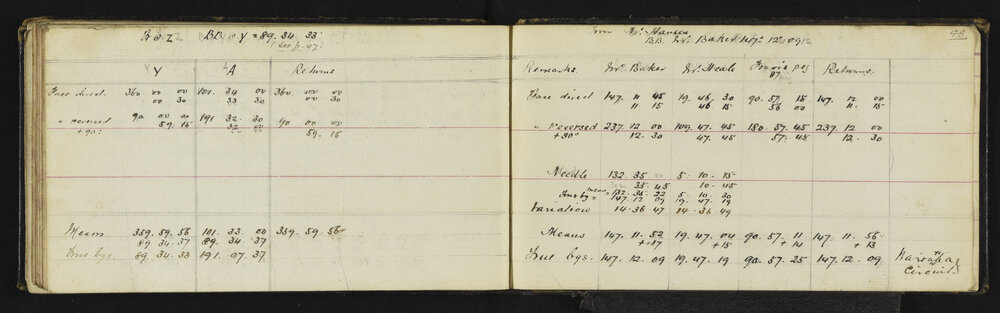 BD @ Y = 89. 34. 33
(see p. 47)
Y A Returns
Face direct 360 00 00 101 34 00 360 00 00
00 30 33 30 00 30
" reversed 90 00 00 191 32 30 90 00 00
+90° 59. 15 32 00 59. 15
Means 359. 59. 56 101 33 00 359. 59. 56
89. 34. 37 89. 34 37
True bgs. 89. 34. 33 191. 07. 37
98
from Mt. Hansen
BD. Mt. Baker 147° 12' 09"
Remarks Mt. Baker Mt. Heale Returns
87
Face direct 147. 11 45 19. 46. 30 90. 57. 15 147. 12 00
11 15 46 15 56 00 11. 15
" reversed 237. 12 00 109. 47. 45 180. 57. 45 237. 12 00
+90° 12. 30 47. 45 57. 45 12. 30
Needle 132. 35 00 5. 10. 15
35. 45 10. 45
means = 132. 35. 22 5. 10. 30
True bg = 147. 12 09 19. 47. 19
Variation 14. 36 47 14. 36 49
Means 147. 11. 52 19. 47. 04 90. 57. 11 147. 11. 56
+ 17 + 15 + 14 + 13
True bgs. 147. 12. 09 19. 47. 19 90. 57. 25 147. 12. 09
Circuit